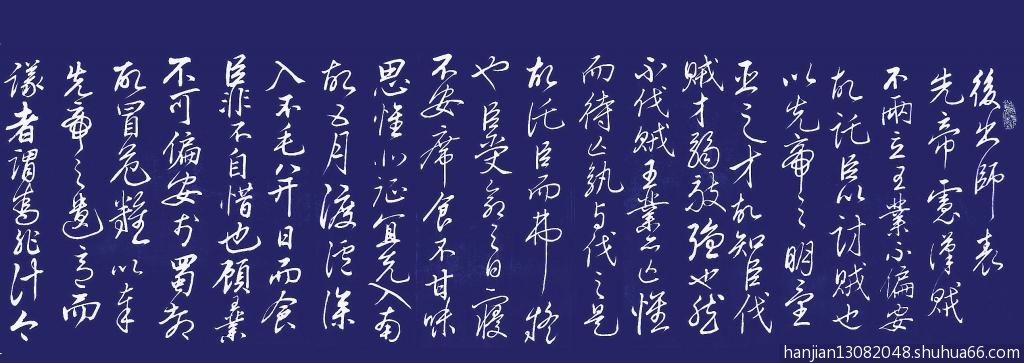 後出師表
先帝慮漢賊
不兩立王業不偏安
故託臣以討賊也
以先帝之明量
臣之才故知臣伐
賊才弱敵強也然
不伐賊王業亦亡惟
而待亡孰与伐之是
故託臣而弗疑
也臣受命之日寢
不安席食不甘味
思惟北征宜先入南
故五月渡瀘深
入不毛并日而食
臣非不自惜也顧業
不可偏安於蜀都
故冒危難以奉
先帝之遺意而
議者謂為非計今
hanjian13082048.shuhua66.com